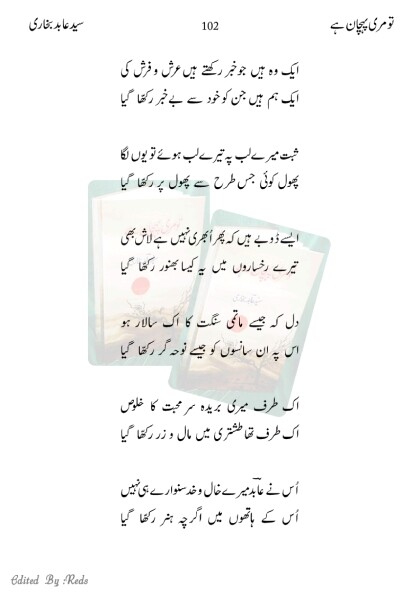 تو مری پہچان ہے 102 سید عابد بخاری
ایک وہ ہیں جو خبر رکھتے ہیں عرش و فرش کی
ایک ہم ہیں جن کو خود سے بے خبر رکھّا گیا
ثبت میرے لب پہ تیرے لب ہوئے تو یوں لگا
پھول کوئی جس طرح سے پھول پر رکھّا گیا
ایسے ڈوبے ہیں کہ پھر اُبھری نہیں ہے لاش بھی
تیرے رخساروں میں یہ کیسا بھنور رکھّا گیا
دل کہ جیسے ماتمی سنگت کا اک سالار ہو
اس پہ ان سانسوں کو جیسے نوحہ گر رکھّا گیا
اک طرف میری بریدہ سر محبت کا خلوص
اک طرف تھا طشتری میں مال و زر رکھّا گیا
اُس نے عابدؔ میرے خال و خد سنوارے ہی نہیں
اُس کے ہاتھوں میں اگرچہ ہنر رکھّا گیا
Edited By Reds